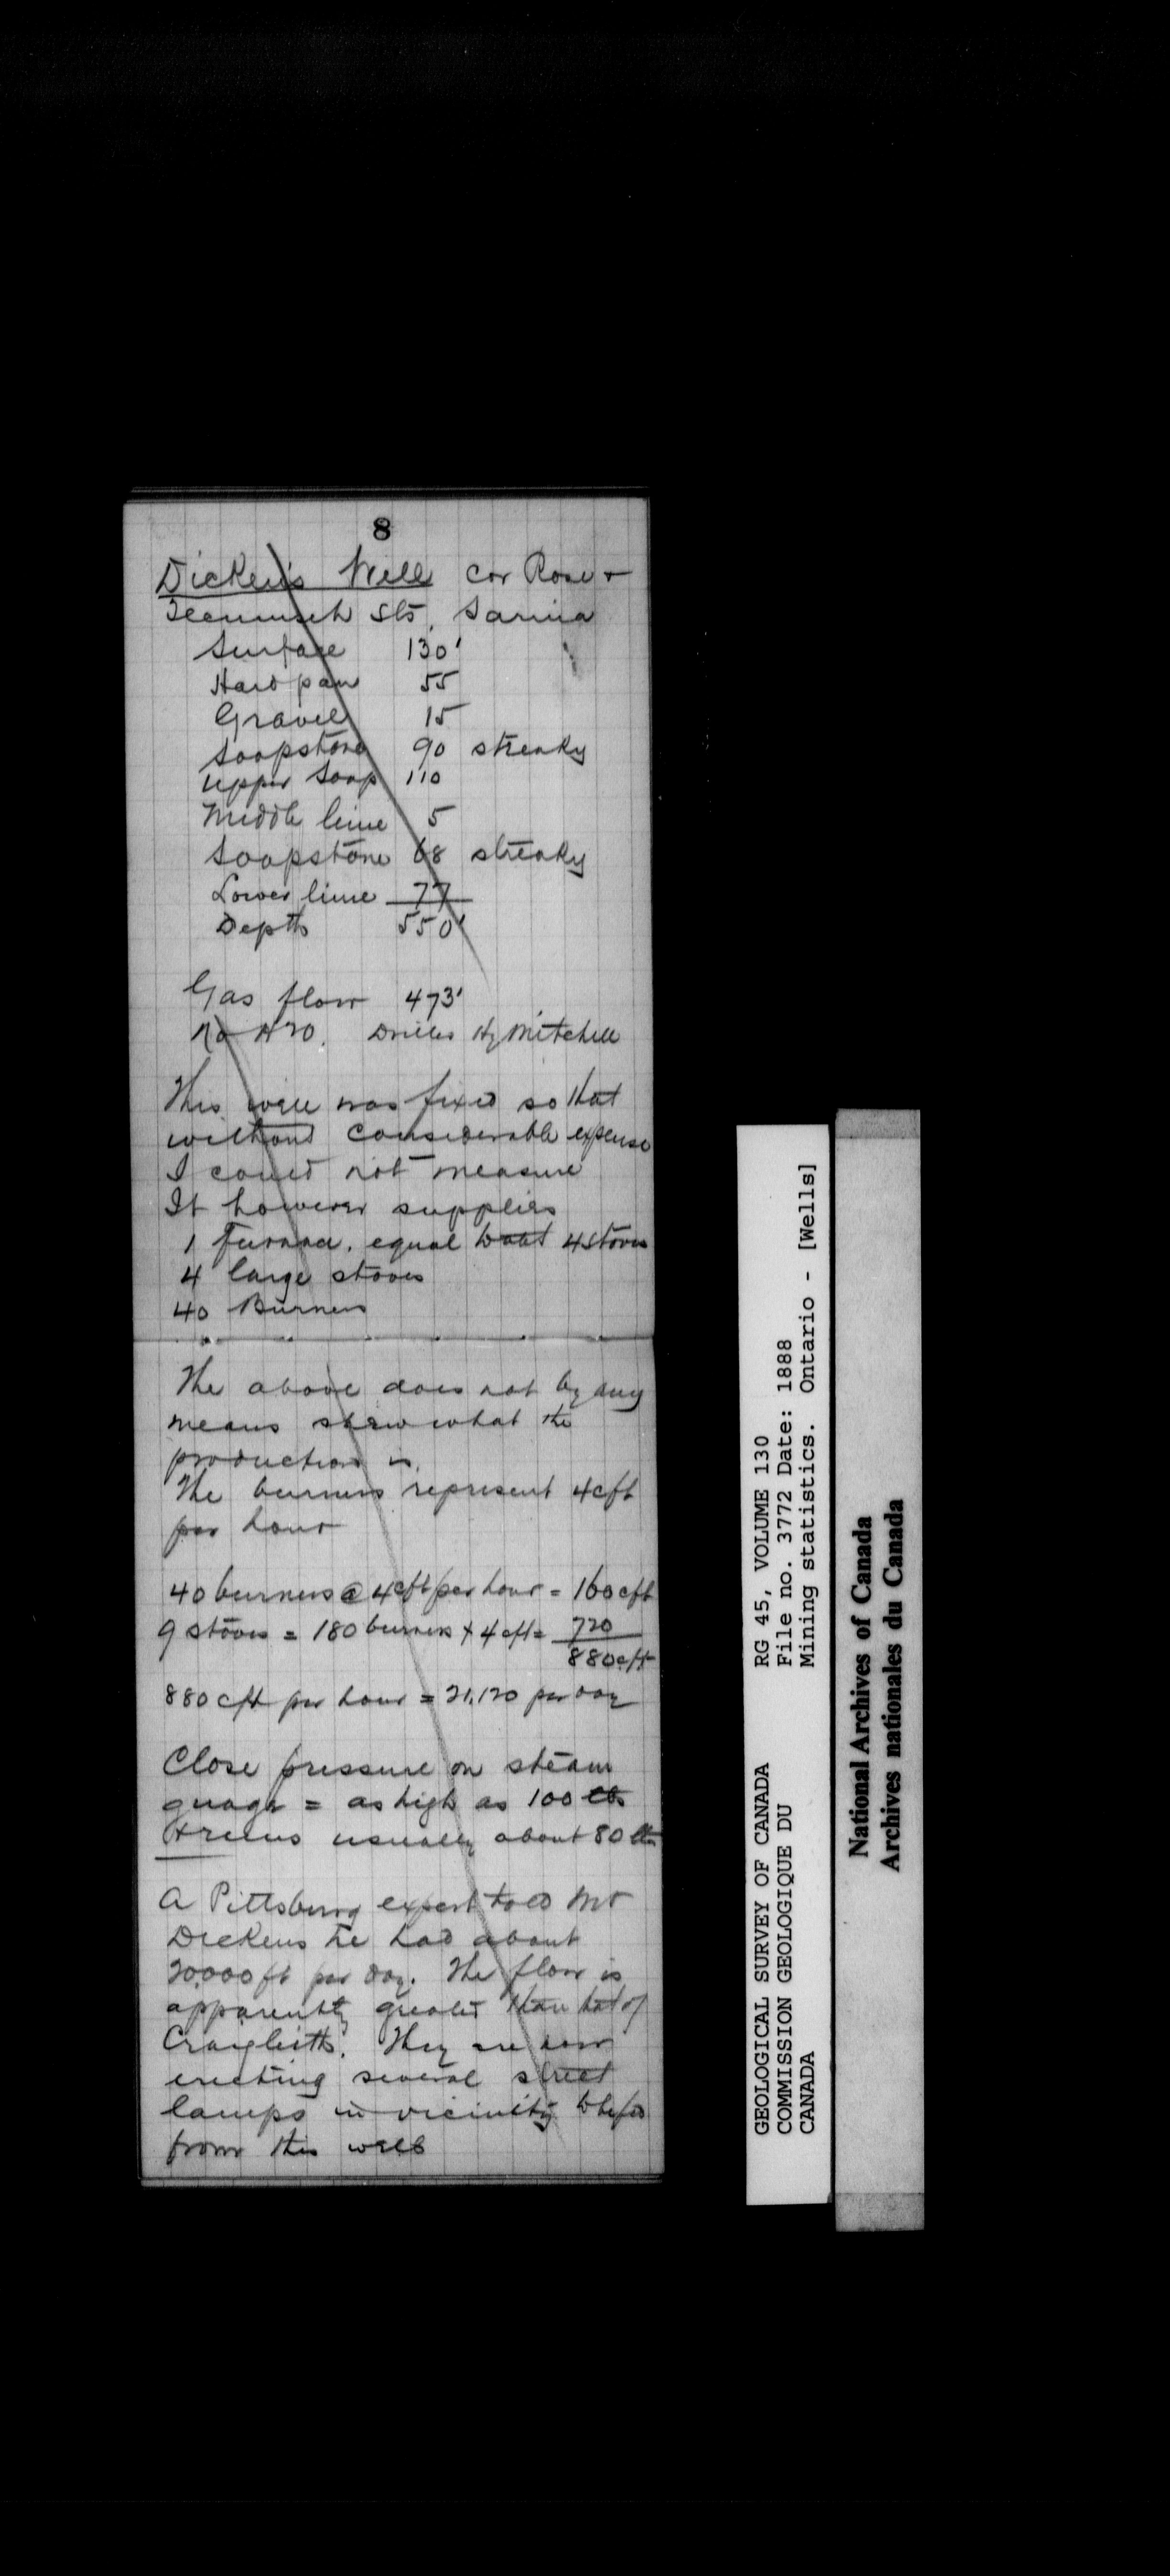 8
Dicken's Well cor Rose +
Tecumseh Sts, Sarnia
Surface 130'
Hard pan 55
Gravel 15
Soapstone 90 streaky
Upper Soap 110
Middle lime 5
Soapstone 68 streaky
Lower lime 77
Depth 550'
Gas flow 473'
No H2O. Driller Hy Mitchell
This well was fixed so that
without considerable expense
I could not measure
It however supplies
1 Furnace, equal 4 stoves
4 large stoves
40 Burners
The above does not by any
means shew what the
production is.
The burners represent 4 cft
per hour
40 burners @ 4 cft per hour = 160 cft
9 stoves = 180 burners x 4 cft = 720
880 cft
880 cft per hour = 21,120 per day
Close pressure on steam
guage = as high as 100 lbs
usually about 80 lbs
A Pittsburg expert told Mr
Dickens he had about
20,000 ft per day. The flow is
apparently greater than that of
Craigleiths. They are now
erecting several street
lamps in vicinity
from this well
GEOLOGICAL SURVEY OF CANADA RG 45, VOLUME 130
COMMISSION GEOLOGIQUE DU File no. 3772 Date: 1888
CANADA Mining statistics. Ontario - [Wells]
National Archives of Canada
Archives nationales du Canada